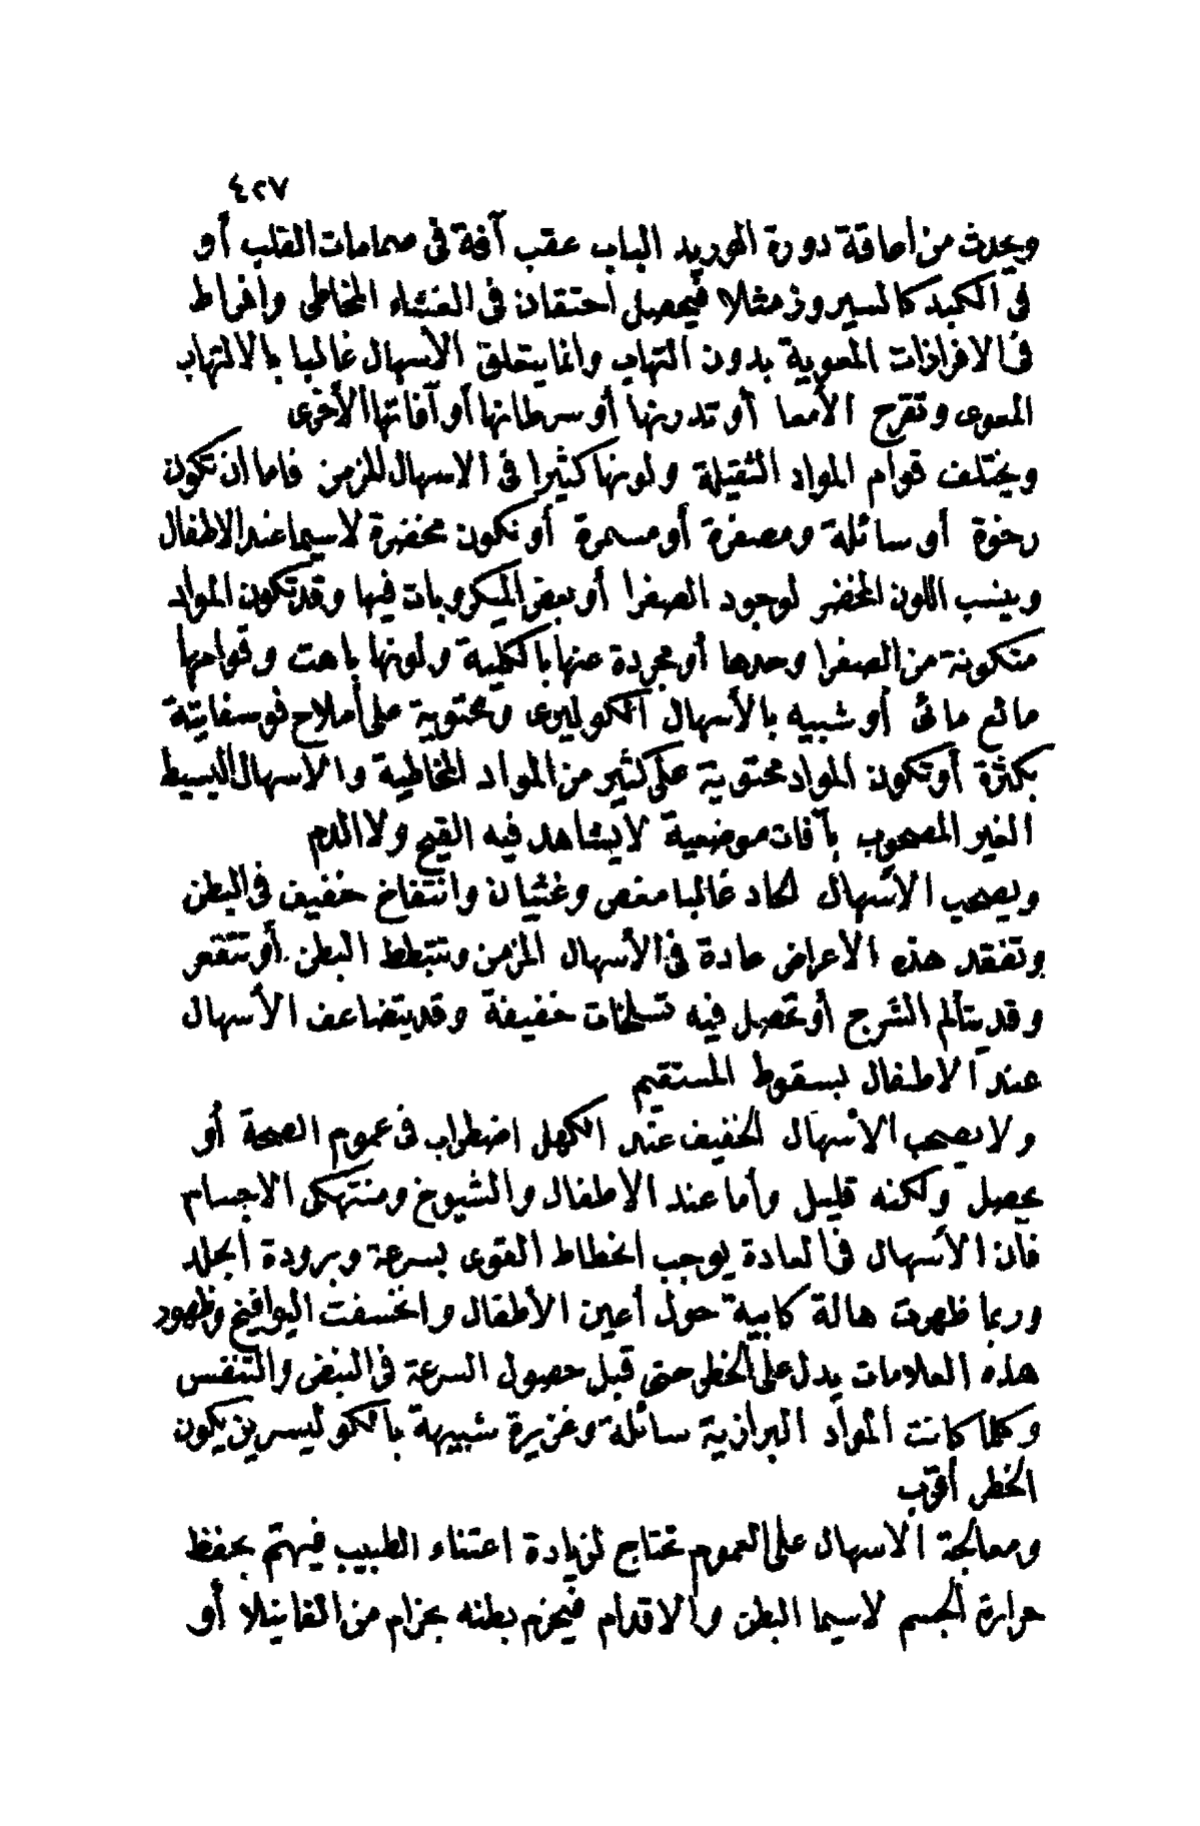 ٤٢٧
ويحدث من اعاقة دورة الوريد الباب عقب آفة فى صمامات القلب أو
فى الكبد كالسيروز مثلا فيحصل احتقان فى الغشاء المخاطى وافراط
فى الافرازات المعوية بدون التهاب وانما يتعلق الأسهال غالبا بالالتهاب
المعوى وتقرح الأمعا أو تدرنها أو سرطانها أو آفاتها الأخرى
ويختلف قوام المواد الثقيلة ولونها كثيرا فى الاسهال المزمن فاما ان تكون
رخوة أو سائلة ومصفرة أو مسمرة أو تكون مخضرة لاسيما عند الاطفال
وينسب اللون المخضر لوجود الصفرا أو بعض الميكروبات فيها وقد تكون المواد
متكونة من الصفرا وحدها أو مجردة عنها بالكلية ولونها باهت وقوامها
مائع مائى أو شبيه بالأسهال الكوليرى ومحتوية على أملاح فوسفاتية
بكثرة أو تكون المواد محتوية على كثير من المواد المخاطية والاسهال البسيط
الغير المصحوب بآفات موضعية لا يشاهد فيه القيح ولا الدم
ويصحب الاسهال الحاد غالبا مغص وغثيان وانتفاخ خفيف فى البطن
وتفقد هذه الاعراض عادة فى الأسهال المزمن وتتبطط البطن أو تتقعر
وقد يتألم الشرج أو تحصل فيه تسلخات خفيفة وقد يتضاعف الأسهال
عند الاطفال بسقوط المستقيم
ولا يصحب الاسهال الخفيف عند الكهل اضطراب فى عموم الصحة أو
يحصل ولكنه قليل وأما عند الاطفال والشيوخ ومنتهكى الاجسام
فان الأسهال فى العادة يوجب انحطاط القوى بسرعة وبرودة الجلد
وربما ظهرت هالة كابية حول أعين الأطفال وانخسفت اليوافيخ وظهور
هذه العلامات يدل على الخطر حتى قبل حصول السرعة فى النبض والتنفس
وكلما كانت المواد البرازية سائلة وغزيرة شبيهة بالكوليسرين يكون
الخطر أقرب
ومعالجة الاسهال على العموم تحتاج لزيادة اعتناء الطبيب فيهتم بحفظ
حرارة الجسم لاسيما البطن والاقدام فيحزم بطنه بحزام من الفانيلا أو